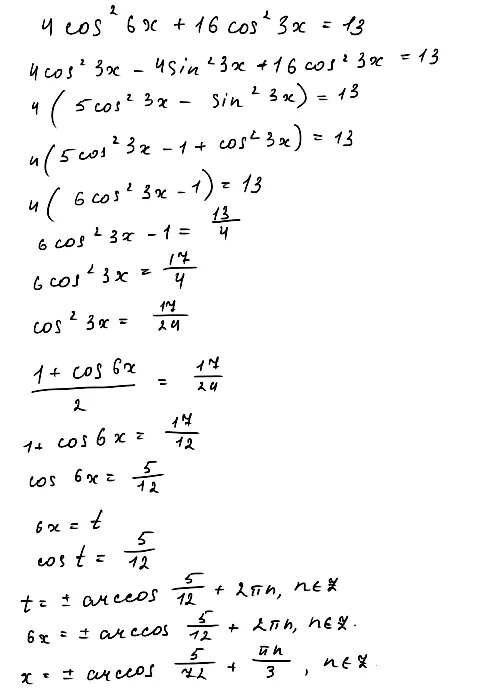 4 cos² 6x + 16 cos² 3x = 13
4cos² 3x - 4sin² 3x + 16 cos² 3x = 13
4 ( 5cos² 3x - sin² 3x) = 13
4(5cos² 3x - 1 + cos² 3x) = 13
4 ( 6cos² 3x - 1) = 13
6cos² 3x - 1 = 13/4
6cos² 3x = 17/4
cos² 3x = 17/24
(1 + cos 6x)/2 = 17/24
1 + cos 6x = 17/12
cos 6x = 5/12
6x = t
cos t = 5/12
t = ± arccos 5/12 + 2πn, n∈Z
6x = ± arccos 5/12 + 2πn, n∈Z.
x = ± arccos 5/72 + πn/3, n∈Z.